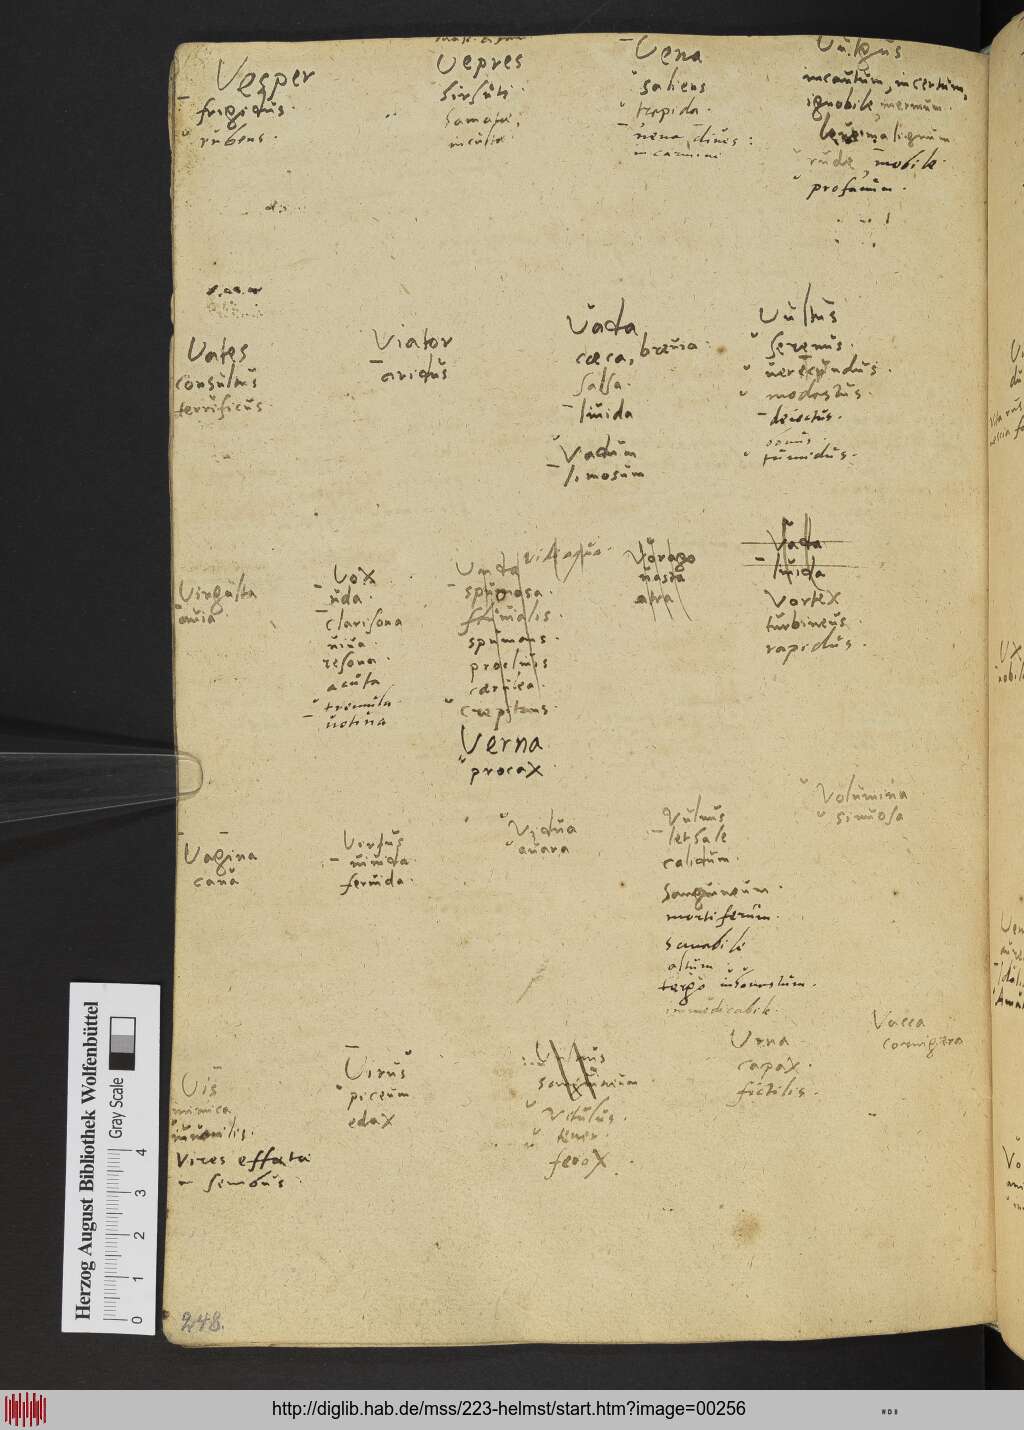 Vesper
frigidus.
rubens.
Vepres
hirsuti
hamatae;
incultae
Vena
saliens
trepida.
vena, dives:
in carmine
Vulgus
incautum, incertum,
ignobile inermum.
leve, malignum
rude, mobile.
profanum.
Vates
consultus
terrificus.
Viator
avidus
Vada
caeca, brevia.
salsa.
livida
Vadum
limosum
Vultus
serenus.
verecundus.
modestus.
deiectus.
tumidus.
Virgulta
avia
Vox
uda.
clarisona
viva.
resona.
acuta
tremula.
votiva
Unda
spumosa.
fluvialis.
spumans.
proclivis
caerulea.
crepitans.
Verna
procax
Vorago
vasta
atra
Vada
livida
Vortex
turbineus.
rapidus.
Vagina
cava
Virtus
vivida.
fervida.
Vidua
avara
Vulnus
lethale
calidum.
Sanguineum.
mortiferum.
sanabile
altum
tergo inhonestum.
immedicabile.
Volumina
sinuosa
Vis
inimica
iuvenilis.
Vires effoeta
in senibus
Virus
piceum
edax
Vulnus
sanguineum
Vitulus.
tener.
ferox.
Urna
capax.
fictilis.
Vacca
cornigera
248.
Herzog August Bibliothek Wolfenbüttel
Gray Scale
0 1 2 3 4
http://diglib.hab.de/mss/223-helmst/start.htm?image=00256